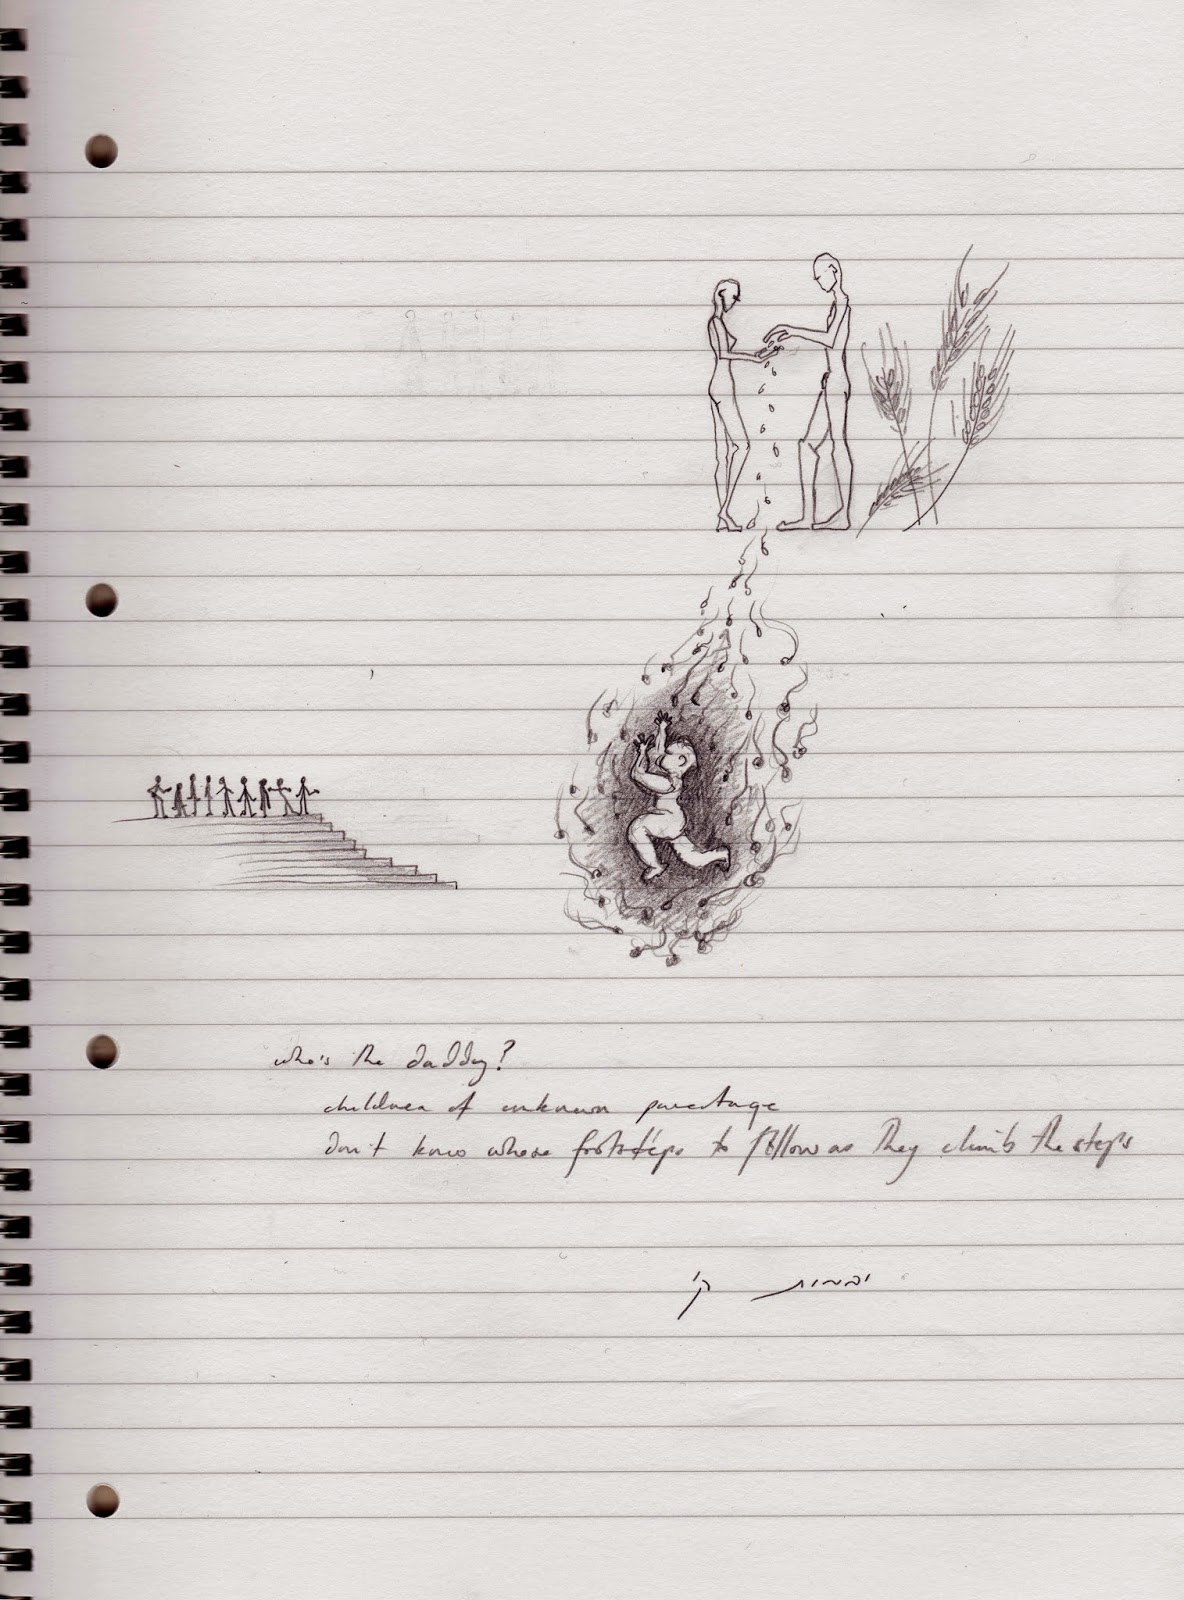 who's the daddy?
children of unknown parentage
don't know whose footsteps to follow as they climb the steps
יבמות ק'